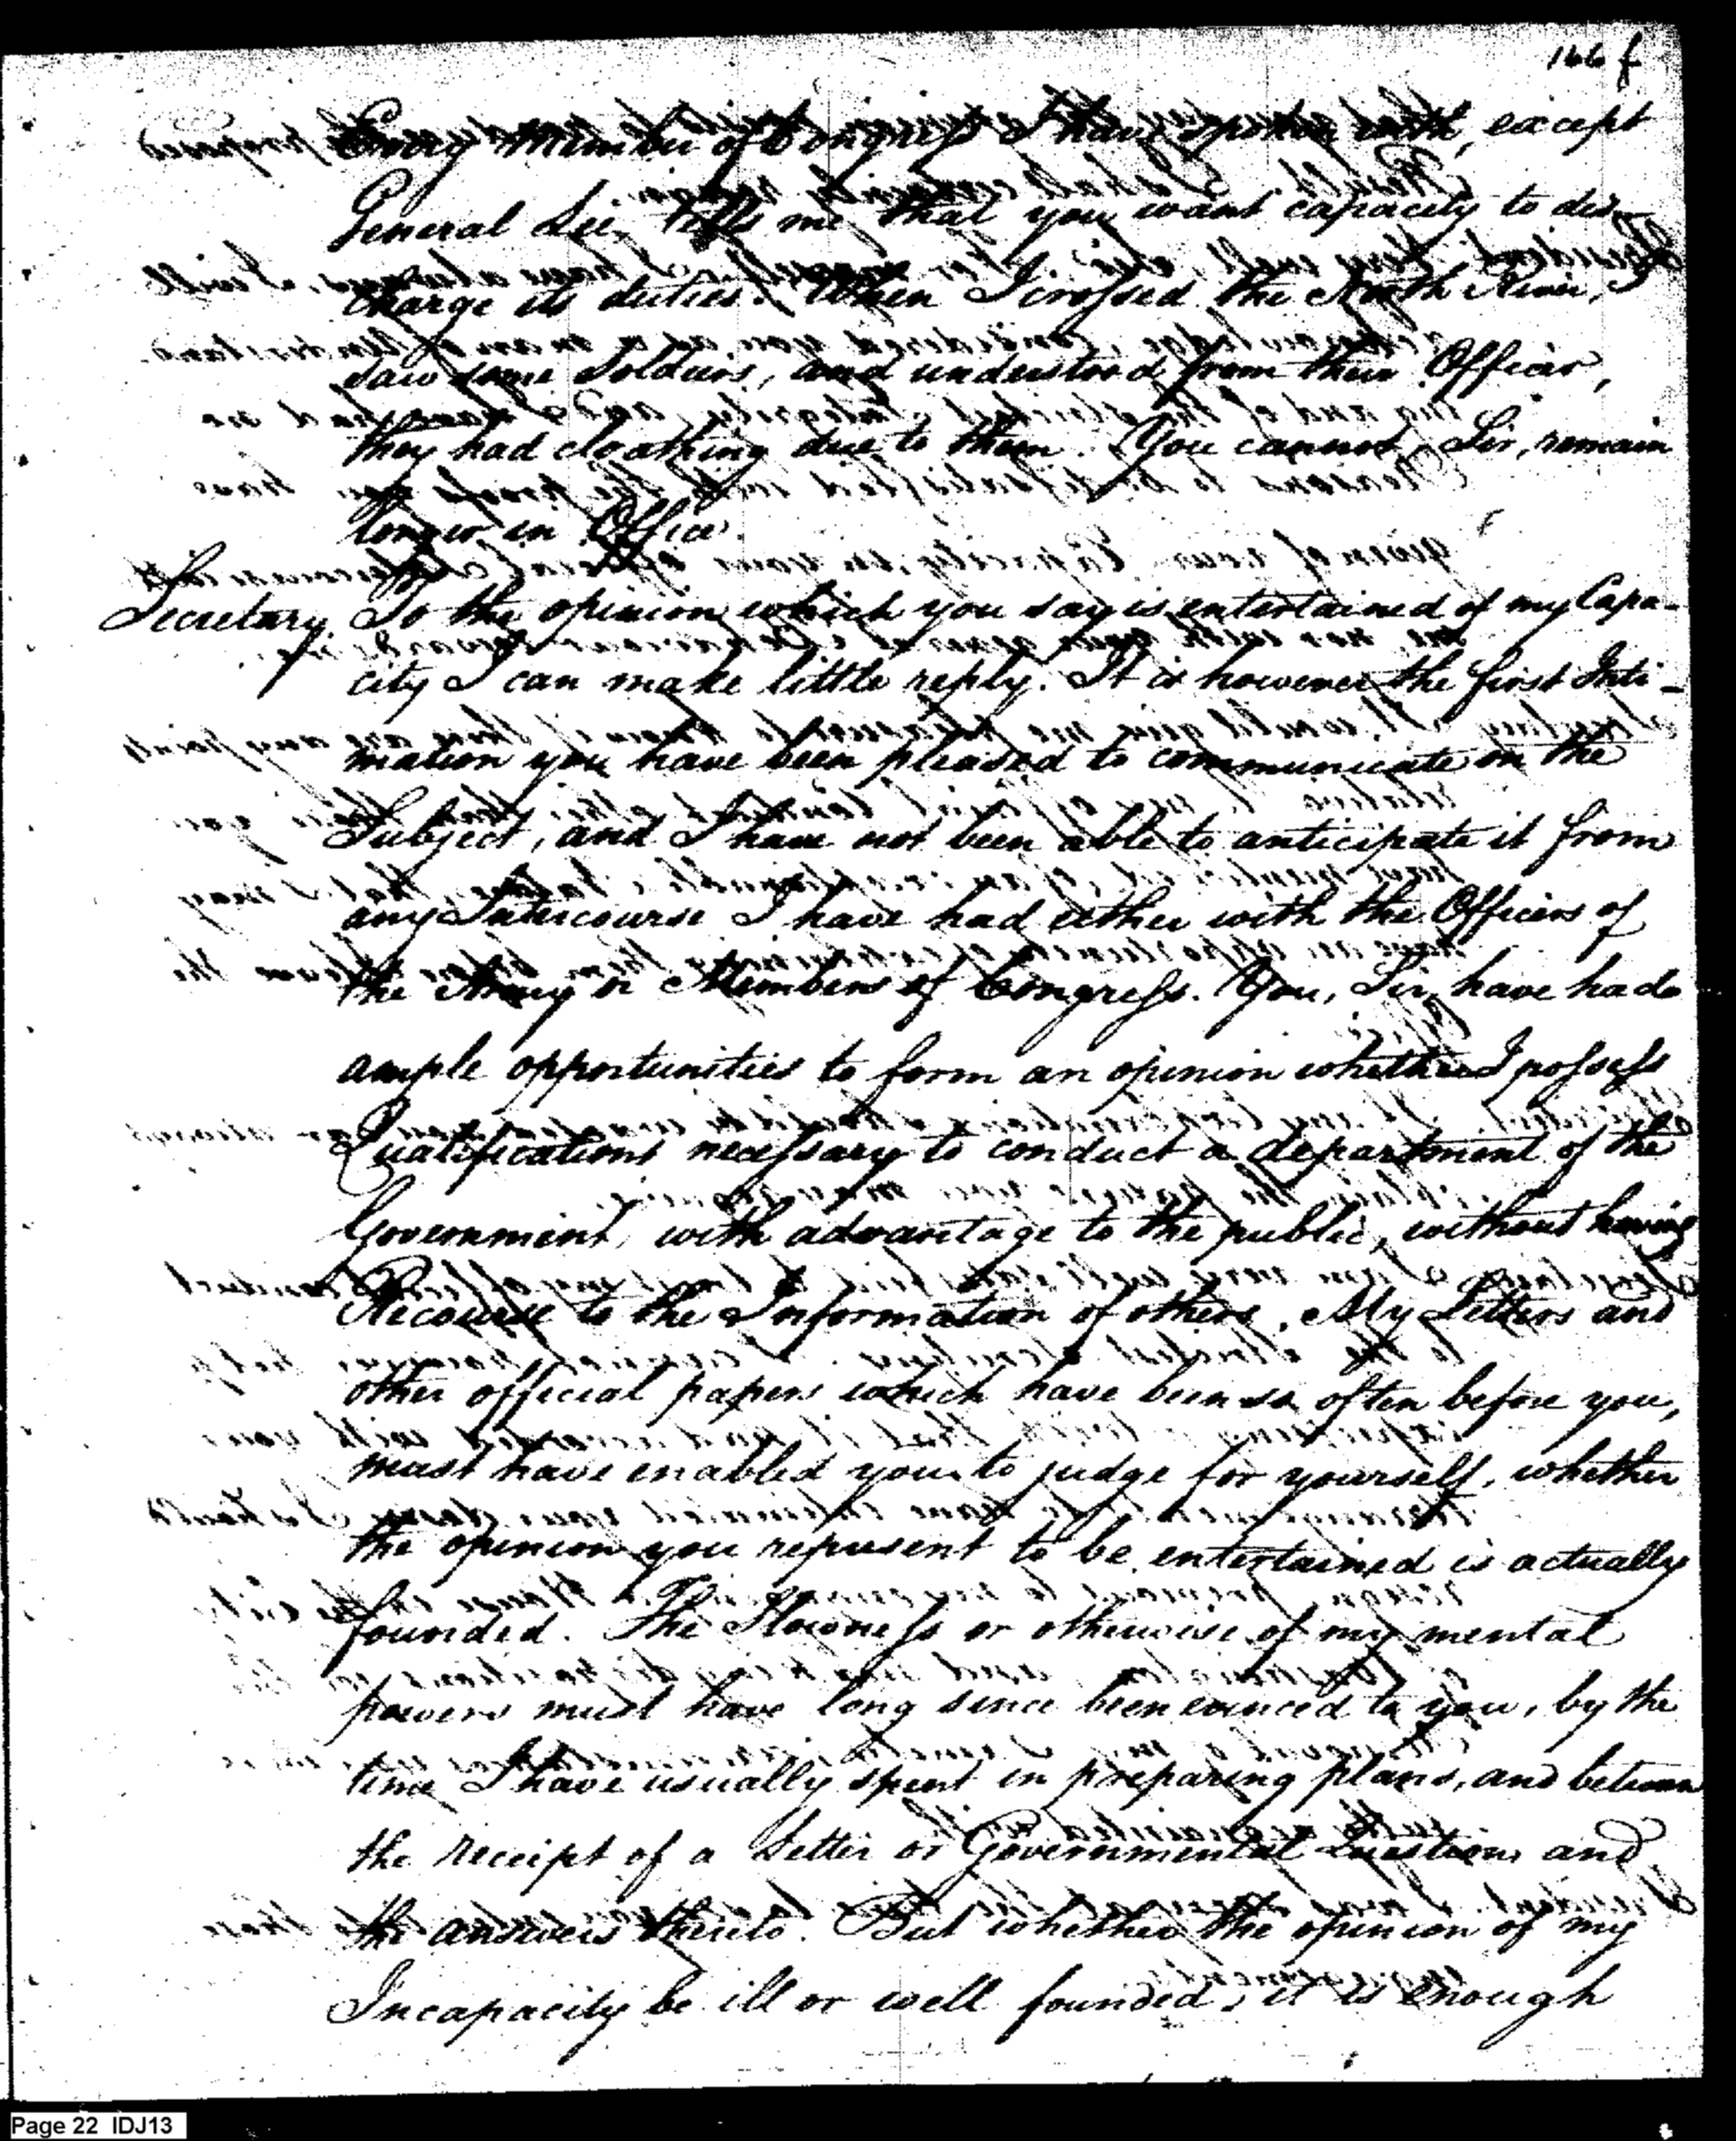 166 f
Every Member of Congress I have spoken with, except
General Lee, tells me that you want capacity to dis-
charge its duties. When I crossed the North River, I
saw some Soldiers, and understood from their Officer,
they had cloathing due to them. You cannot, Sir, remain
longer in Office.
Secretary. To the opinion which you say is entertained of my Capa-
city I can make little reply. It is however the first Inti-
mation you have been pleased to communicate on the
Subject, and I have not been able to anticipate it from
any Intercourse I have had either with the Officers of
the Army or Members of Congress. You, Sir, have had
ample opportunities to form an opinion whether I possess
Qualifications necessary to conduct a department of the
Government, with advantage to the public, without having
Recourse to the Information of others. My Letters and
other official papers which have been so often before you,
must have enabled you to judge for yourself, whether
the opinion you represent to be entertained is actually
founded. The Slowness or otherwise of my mental
powers must have long since been evinced to you, by the
time I have usually spent in preparing plans, and between
the receipt of a Letter or Governmental Questions and
the answers thereto. But whether the opinion of my
Incapacity be ill or well founded, it is enough
Page 22 IDJ13